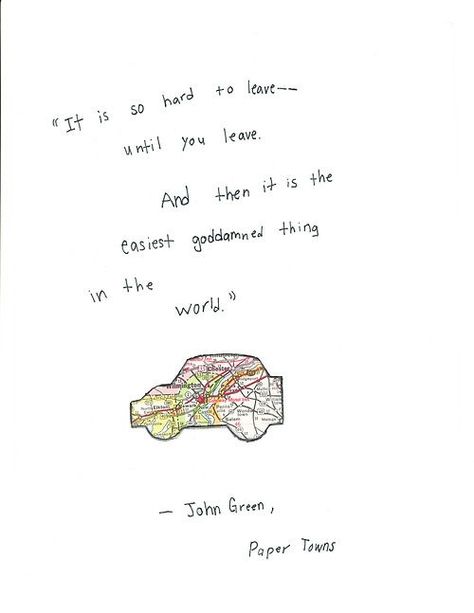 "It is so hard to leave--
until you leave.
And then it is the
easiest goddamned thing
in the
world."
Chester
Wilmington
Elkton
Salem
— John Green,
Paper Towns